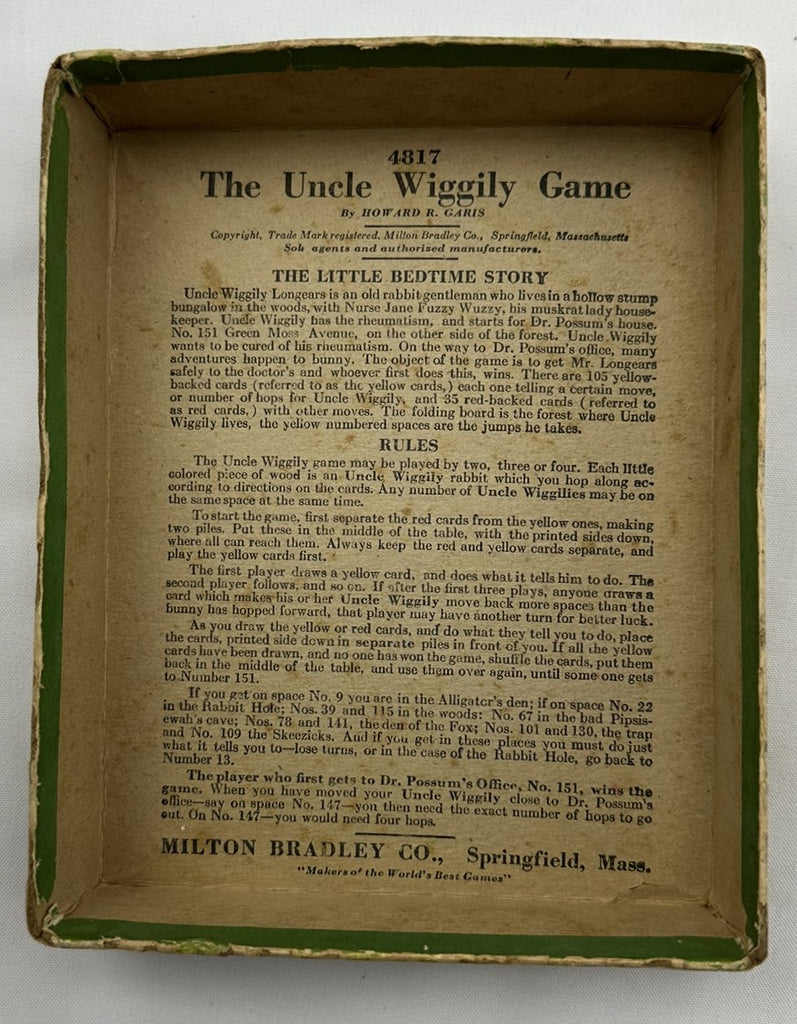 4817
The Uncle Wiggily Game
By HOWARD R. GARIS
Copyright, Trade Mark registered, Milton Bradley Co., Springfield, Massachusetts
Sole agents and authorized manufacturers.
THE LITTLE BEDTIME STORY
Uncle Wiggily Longears is an old rabbit gentleman who lives in a hollow stump
bungalow in the woods, with Nurse Jane Fuzzy Wuzzy, his muskrat lady house-
keeper. Uncle Wiggily has the rheumatism, and starts for Dr. Possum's house.
No. 151 Green Moss Avenue, on the other side of the forest. Uncle Wiggily
wants to be cured of his rheumatism. On the way to Dr. Possum's office, many
adventures happen to bunny. The object of the game is to get Mr. Longears
safely to the doctor's and whoever first does this, wins. There are 105 yellow-
backed cards (referred to as the yellow cards,) each one telling a certain move,
or number of hops for Uncle Wiggily, and 35 red-backed cards (referred to
as red cards,) with other moves. The folding board is the forest where Uncle
Wiggily lives, the yellow numbered spaces are the jumps he takes.
RULES
The Uncle Wiggily game may be played by two, three or four. Each little
colored piece of wood is an Uncle Wiggily rabbit which you hop along ac-
cording to directions on the cards. Any number of Uncle Wiggilies may be on
the same space at the same time.
To start the game, first separate the red cards from the yellow ones, making
two piles. Put these in the middle of the table, with the printed sides down,
where all can reach them. Always keep the red and yellow cards separate, and
play the yellow cards first.
The first player draws a yellow card, and does what it tells him to do. The
second player follows, and so on. If after the first three plays, anyone draws a
card which makes his or her Uncle Wiggily move back more spaces than the
bunny has hopped forward, that player may have another turn for better luck.
As you draw the yellow or red cards, and do what they tell you to do, place
the cards, printed side down in separate piles in front of you. If all the yellow
cards have been drawn, and no one has won the game, shuffle the cards, put them
back in the middle of the table, and use them over again, until some one gets
to Number 151.
If you get on space No. 9 you are in the Alligator's den; if on space No. 22
in the Rabbit Hole; Nos. 39 and 115 in the woods; No. 67 in the bad Pipsis-
ewah's cave; Nos. 78 and 141, the den of the Fox; Nos. 101 and 130, the trap
and No. 109 the Skeezicks. And if you get in these places you must do just
what it tells you to—lose turns, or in the case of the Rabbit Hole, go back to
Number 13.
The player who first gets to Dr. Possum's Office, No. 151, wins the
game. When you have moved your Uncle Wiggily close to Dr. Possum's
office—say on space No. 147—you then need the exact number of hops to go
out. On No. 147—you would need four hops.
MILTON BRADLEY CO., Springfield, Mass.
"Makers of the World's Best Games"